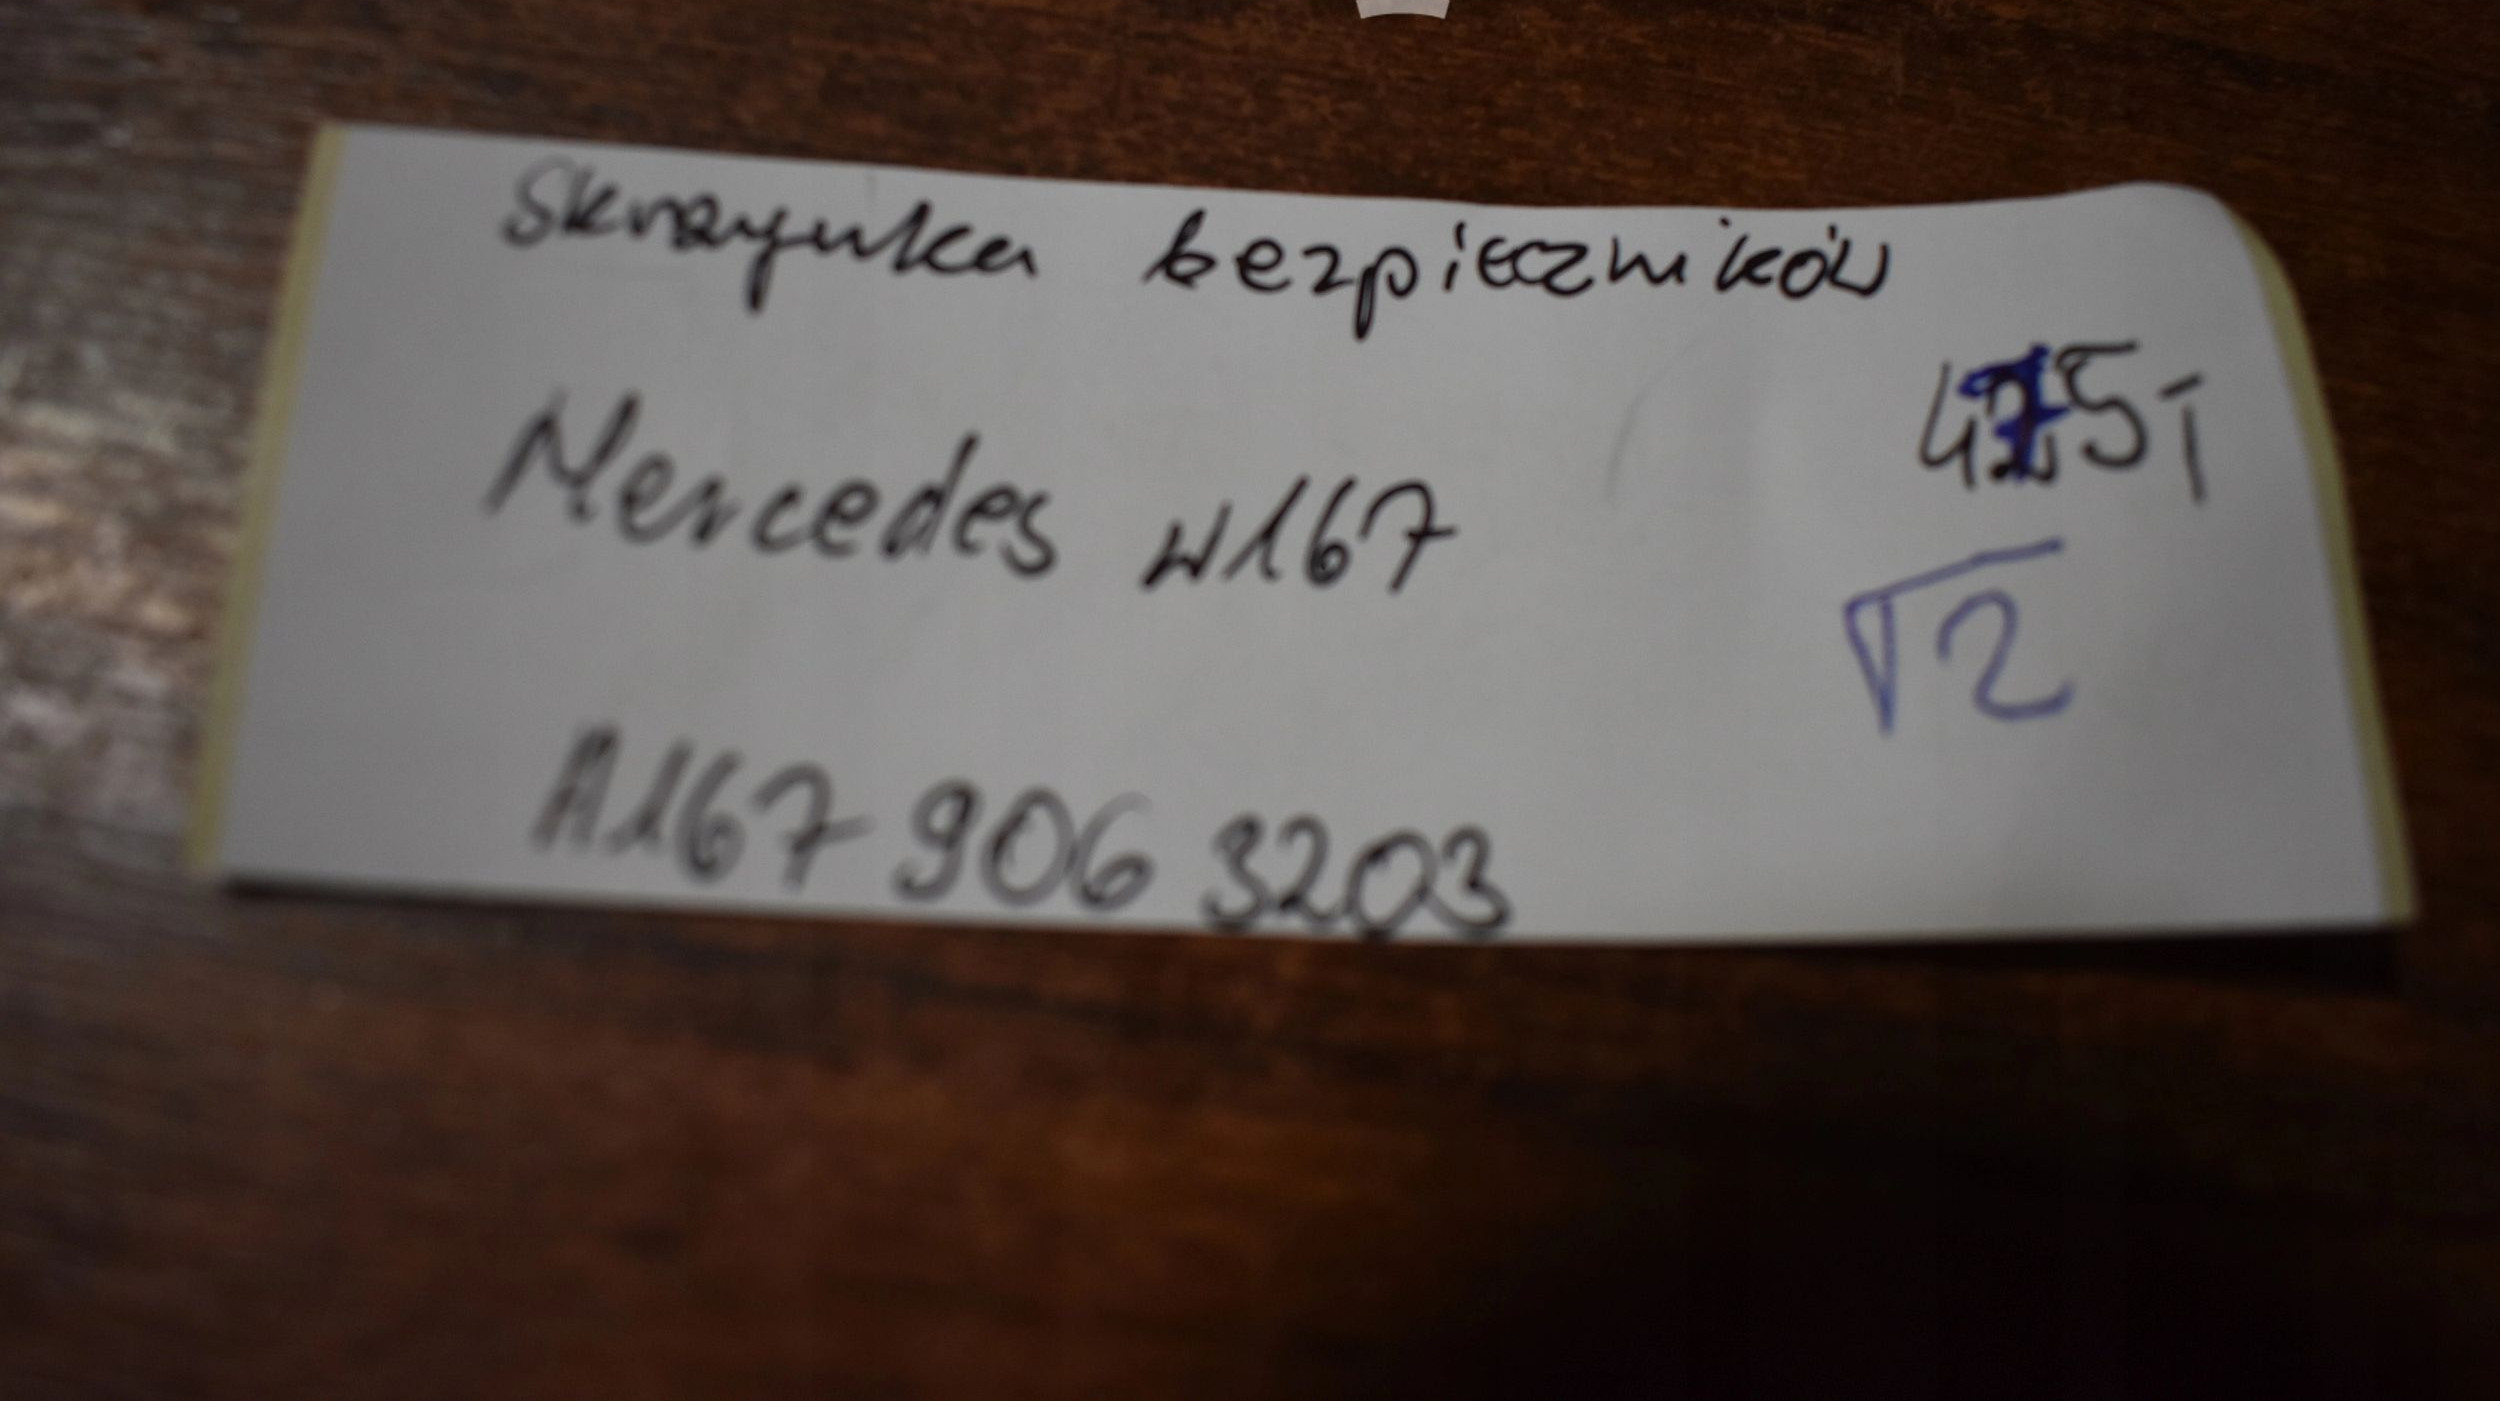 Skrzynka bezpieczników
Mercedes w167
√2
A167 906 3203